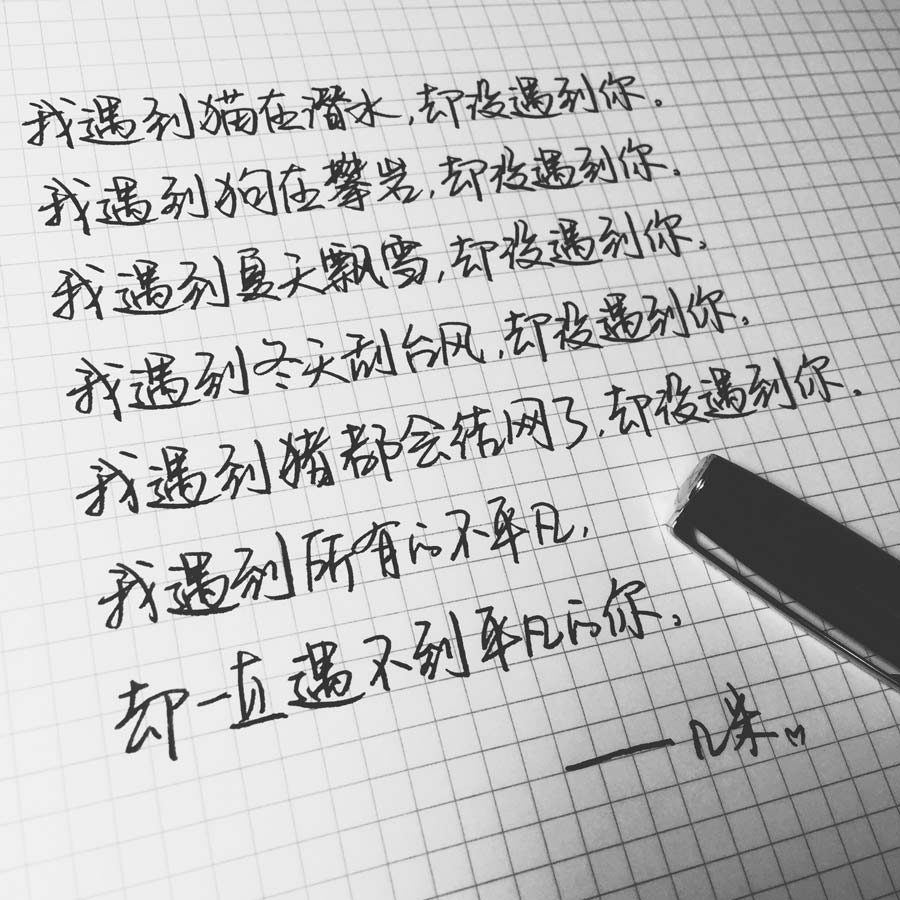 我遇到猫在潜水,却没遇到你。
我遇到狗在攀岩,却没遇到你。
我遇到夏天飘雪,却没遇到你。
我遇到冬天刮台风,却没遇到你。
我遇到猪都会结网了,却没遇到你。
我遇到所有的不平凡,
却一直遇不到平凡的你。